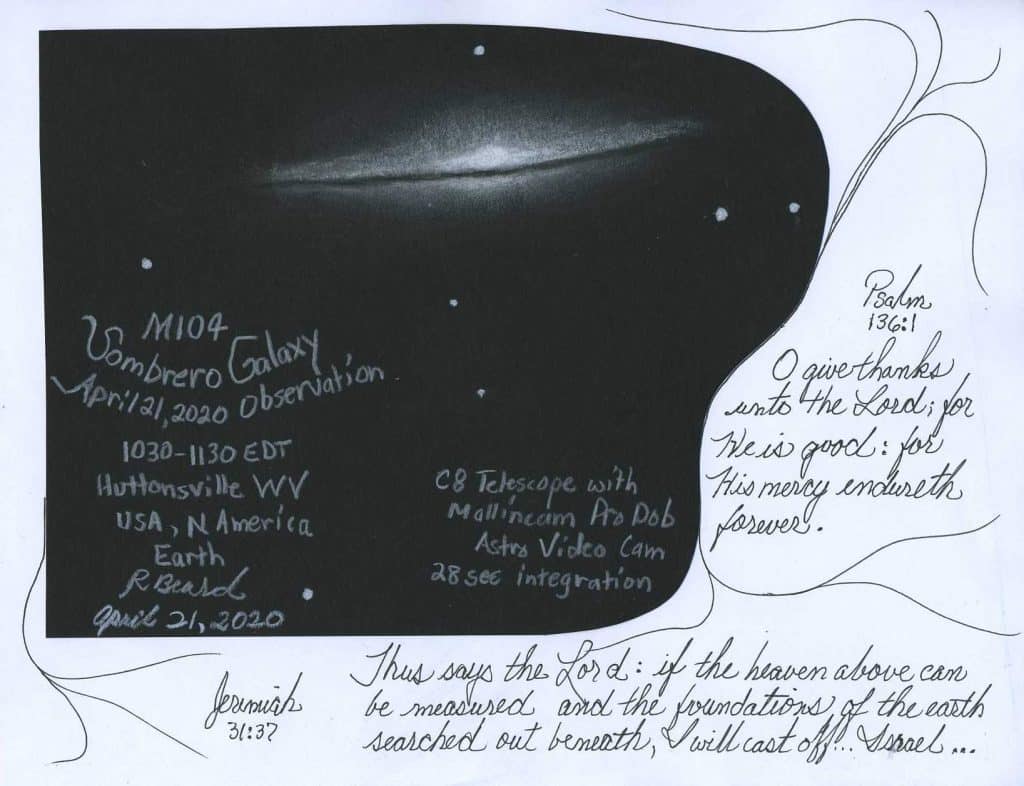 M104
Sombrero Galaxy
April 21, 2020 Observation
1030-1130 EDT
Huttonsville WV
USA, N America
Earth
R Beard
April 21, 2020
C8 Telescope with
Mallincam Pro Dob
Astro Video Cam
28 sec integration
Psalm
136:1
O give thanks
unto the Lord; for
He is good: for
His mercy endureth
forever.
Jeremiah
31:37
Thus says the Lord: if the heaven above can
be measured and the foundations of the earth
searched out beneath, I will cast off... Israel...